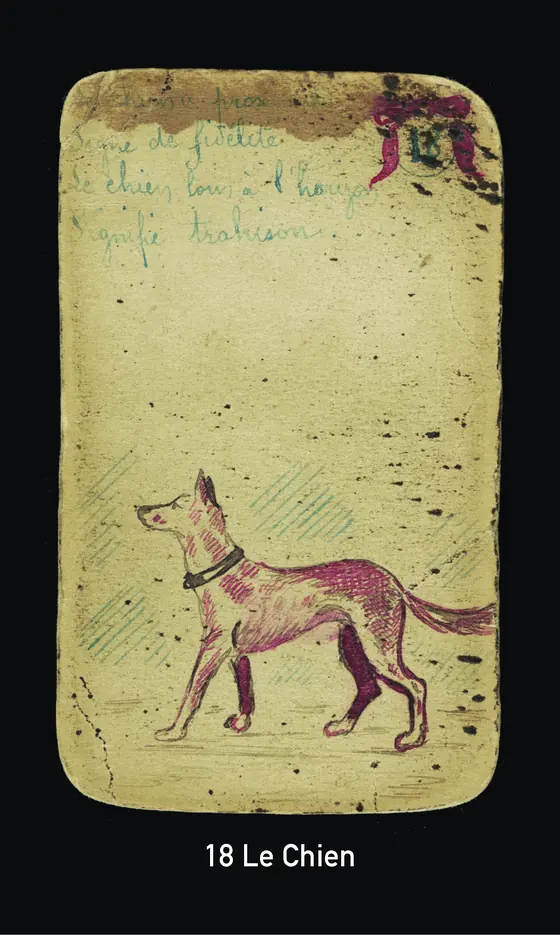 18
Signe de fidélité
Le chien loin à l'horizon
Signifie trahison.
18 Le Chien